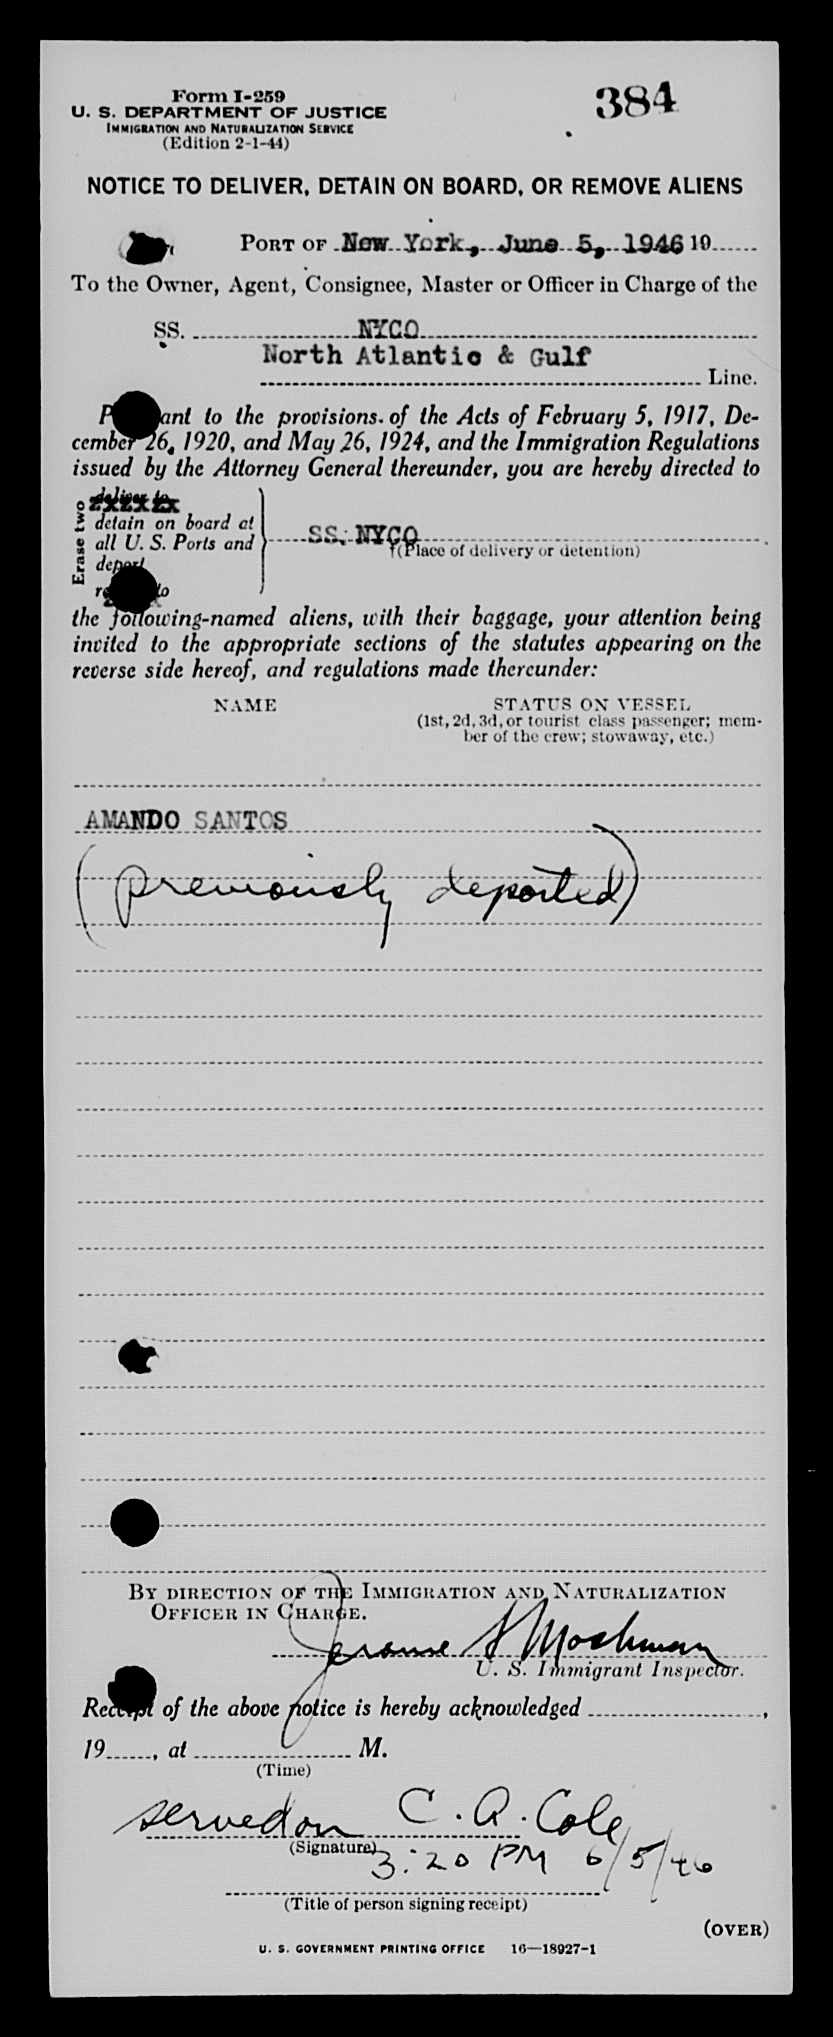 Form I-259
384
U. S. DEPARTMENT OF JUSTICE
IMMIGRATION AND NATURALIZATION SERVICE
(Edition 2-1-44)
NOTICE TO DELIVER, DETAIN ON BOARD, OR REMOVE ALIENS
PORT OF New York, June 5, 1946 19
To the Owner, Agent, Consignee, Master or Officer in Charge of the
SS. NYCO
North Atlantic & Gulf
Line.
P ant to the provisions of the Acts of February 5, 1917, De-
cember 26, 1920, and May 26, 1924, and the Immigration Regulations
issued by the Attorney General thereunder, you are hereby directed to
Erase two
deliver to
detain on board at
all U. S. Ports and
deport
to
SS. NYCO
(Place of delivery or detention)
the following-named aliens, with their baggage, your attention being
invited to the appropriate sections of the statutes appearing on the
reverse side hereof, and regulations made thereunder:
NAME
STATUS ON VESSEL
(1st, 2d, 3d, or tourist class passenger; mem-
ber of the crew; stowaway, etc.)
AMANDO SANTOS
(previously deported)
BY DIRECTION OF THE IMMIGRATION AND NATURALIZATION
OFFICER IN CHARGE.
Jerome S Moshman
U. S. Immigrant Inspector.
Receipt of the above notice is hereby acknowledged ,
19 , at M.
(Time)
served on C. A. Cole
(Signature)
3:20 PM 6/5/46
(Title of person signing receipt)
(OVER)
U. S. GOVERNMENT PRINTING OFFICE 16—18927-1